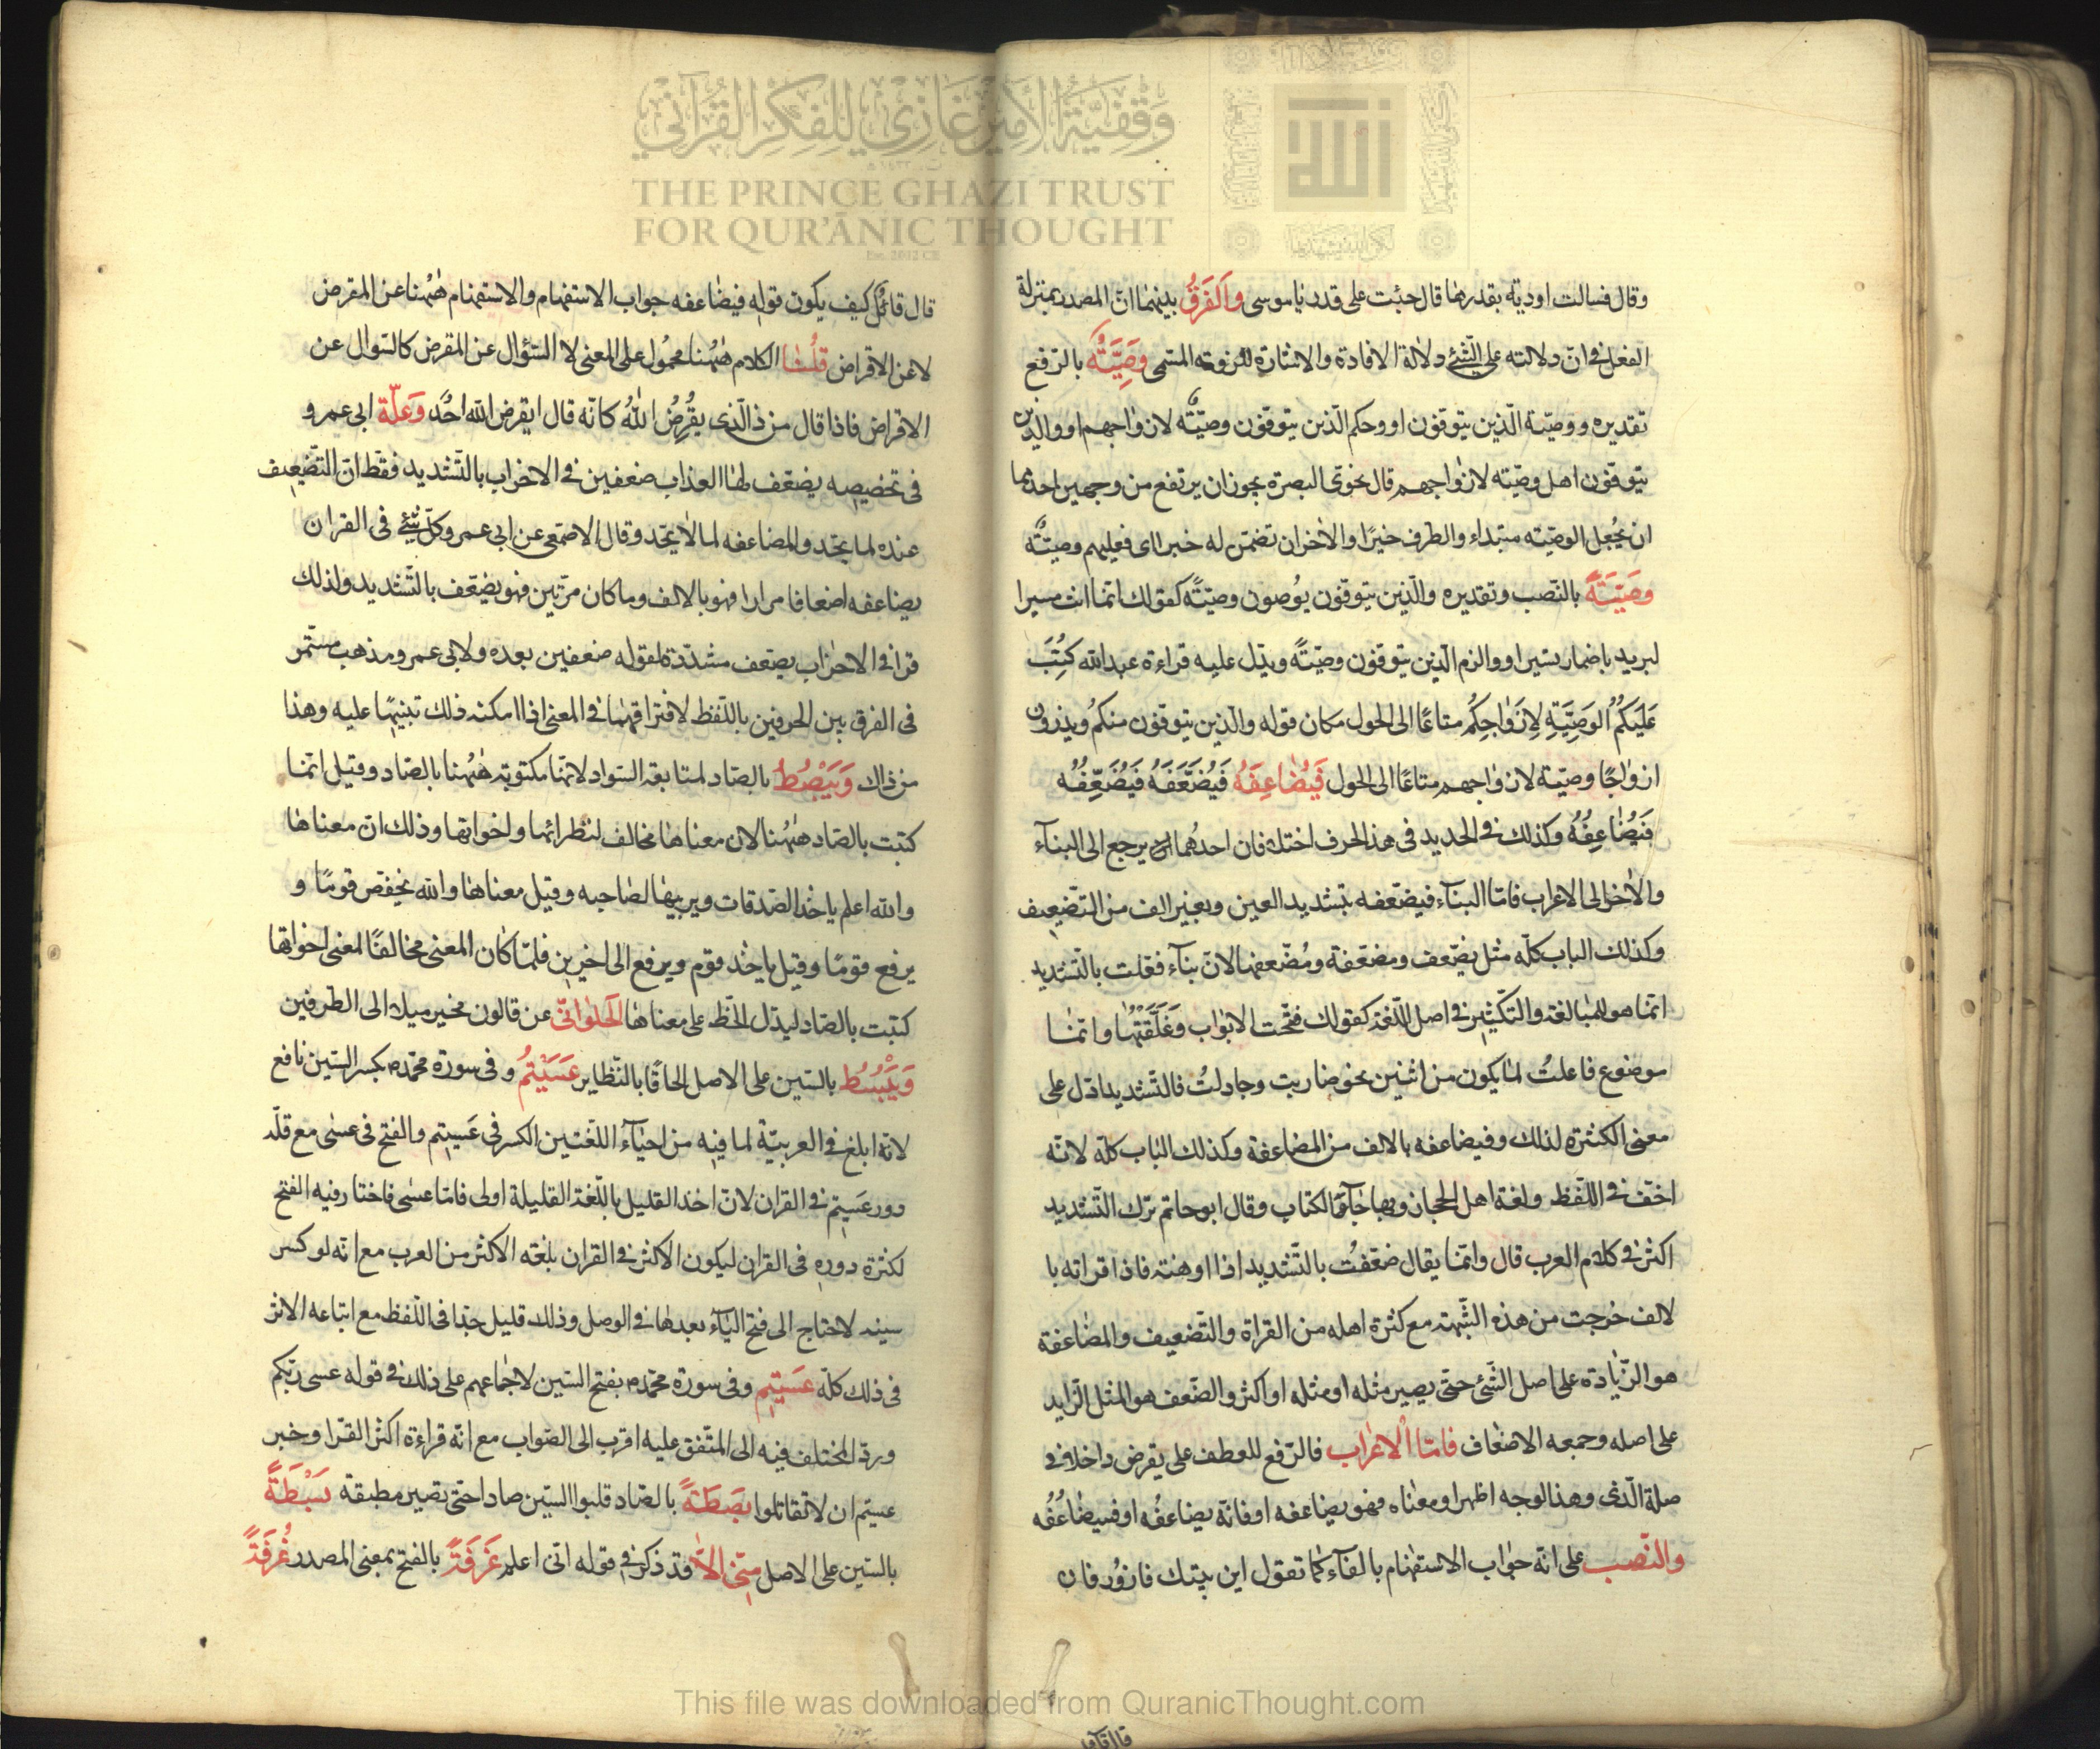 وقفية الأمير غازي للفكر القرآني
THE PRINCE GHAZI TRUST
FOR QUR'ĀNIC THOUGHT
Est. 2012 CE
الله
وقال فسالت اودية بقدرها قال جئت على قدر ياموسى والفرق بينهما انّ المصدر بمنزلة
الفعل في انّ دلالته على الشّئ دلالة الافادة والاشارة للزومه المسمى وَصِيَّتُه بالرّفع
تقديره ووصيّة الّذين يتوفّون او وحكم الّذين يتوفّون وصيّتُه لازواجهم او والذين
يتوفّون اهل وصيّته لازواجهم قال نحوىّ البصرة يجوزان يرتفع من وجهين احدهما
ان يجُعل الوصيّته مبتداء والظرف خبرًا والاخران تضمّن له خبرا اى فعليهم وصيّتُه
وَصَيَّتَةً بالنّصب وتقديره والّذين يتوفّون يوُصون وصيّتةً كقولك انّما انت سيرا
لبريد باضمار يسيراو والزم الّذين يتوفون وصيّتةً ويدّل عليه قراءة عبدالله كُتِبَ
عَلَيَكُمُ الوَصِيَّةِ لِازَوٰاجِكُم متاعًا الى الحول مكان قوله والّذين يتوفّون منكمُ ويذرون
ازواجًا وصيّة لازواجهم متاعًا الى الحول فَيُضٰاعِفَهُ فَيُضَعَّفَهُ فَيُضَعِّفُه
فَيُضٰاعِفُهُ وكذلك في الحديد في هذا الحرف اختلاف ان احدهُما يرجع الى البناآء
والاخر الى الاعراب فامّا البناآء فيضعّفه بتشديد العين وبغير الف من التّضعيف
وكذلك الباب كلّه مثل يضّعف ومضعّفة ومُضّعفها لانّ بناآء فعّلت بالتّشديد
انّما هو للمُبالغة والتّكثير في اصل اللّغة كقولك فتّحت الابوٰاب وَغَلَّقَتُهٰا وانّمٰا
موضوع فاعلتُ لما يكون من اثنين نحو ضاربت وجادلتُ فالتّشديد ادّل على
معنى الكثرة لذلك وفيضاعفه بالالف من المضاعفة وكذلك الباب كلّه لانّه
اخفّ في اللّفظ ولغة اهل الحجاز وبها الكتاب وقال ابو حاتم ترك التّشديد
اكثر في كلام العرب قال وانّما يقال ضعّفتُ بالتّشديد اذا اوهنته فاذا قراته با
لالف خرجت من هذه الشّبهة مع كثرة اهله من القراة والتّضعيف والمضٰاعفة
هو الزّيٰادة على اصل الشّئ حتى يصير مثله او مثله او اكثر والضّعف هو المثل الزّايد
على اصله وجمعه الاضعاف فامّا الْاعراب فالرّفع للعطف على يقرض داخلا في
صلة الّذى وهذا لوجه اظهر او معنٰاه فهو يضاعفه او فانّه يضاعفُه او فسيضٰاعفُه
والنّصب على انّه جواب الاستفهام بالفآء كما تقول اين بيتك فازوُر فان
قال قائل
قال قائلٌ كيف يكون قوله فيضٰاعفه جواب الاستفهام والاستفهام هٰهُنا عن المقرض
لا عن الاقراض قلُنٰا الكلام هٰهُنا محموُل على المعنى لا السّؤال عن المقرض كالسّوال عن
الاقراض فاذا قال من ذا الّذى يقُرِضُ اللهَ كانّه قال ايقرض الله احُد وَعلّة ابى عمرو
في تخصيصه يضعّف لها العذاب ضعفين في الاحزاب بالتّشديد فقط انّ التّضعيف
عنده لما يتحد والمضاعفه لما لا يتحد وقال الاصمعى عن ابى عمرو كلّ شئ في القران
يضاعفه اضعافا مرارا فهو بالالف وما كان مرّتين فهو يضعّف بالتّشديد ولذلك
قرا في الاحزاب يضعف مشدّدة لقوله ضعفين بعده ولابى عمرو مذهب مستّمر
في الفرق بين الحرفين باللّفظ لافتراقهما في المعنى اذا امكنه ذلك تنبيهًا عليه وهذا
من ذاك وَيَبْصُطُ بالصّاد لمتابعة السّواد لانّها مكتوبة هٰهُنا بالصّاد وقيل انّما
كتبت بالصّاد هٰهُنا لان معناها مخالف لنظرائها واخواتها وذلك انّ معناها
والله اعلم ياخذ الصّدقات ويربيها لصٰاحبه وقيل معناها والله يخفض قومًا و
يرفع قومًا وقيل ياخذ قوم ويرفع الى اخرين فلمّا كان المعنى مخالفًا لمعنى اخواتها
كتبت بالصّاد ليدّل الخّط على معناها الَحلوٰانّى عن قالون مخير ميلا الى الطرفين
وَيَبْسُطُ بالسّين على الاصل الحاقًا بالنّظاير عَسَيْتُم وفى سورة محمّد م بكسر السّين نافع
لانّه ابلغ في العربيّة لما فيه من احيٰآء اللّغتين الكسر في عَسِيتم والفتح في عسٰى مع قلّة
دور عَسِيتم في القران لانّ اخذ القليل باللّغة القليلة اولى فامّا عسٰى فاختار فيه الفتح
لكثرة دوره في القران ليكون الاكثر في القران بلغة الاكثر من العرب مع انّه لو كسر
سينه لاحتاج الى فتح اليآء بعدها في الوصل وذلك قليل جدّا في اللّفظ مع اتباعه الاثر
في ذلك كلّه عَسَيتم وفى سورة محمّد م بفتح السّين لاجٰماعهم على ذلك في قوله عسى ربّكم
وردّ المختلف فيه الى المتّفق عليه اقرب الى الصّواب مع انّه قراءة اكثر القرّا وخبر
عسيتم ان لا تقاتلوا بصَطَةً بالصّاد قلبوا السّين صادا حتى تصير مطبقه بَسْطَةً
بالسّين على الاصل مِنّى الاّ قد ذكر في قوله انّى اعلم غَرَفَةً بالفتح بمعنى المصدر غُرفَةً
This file was downloaded from QuranicThought.com